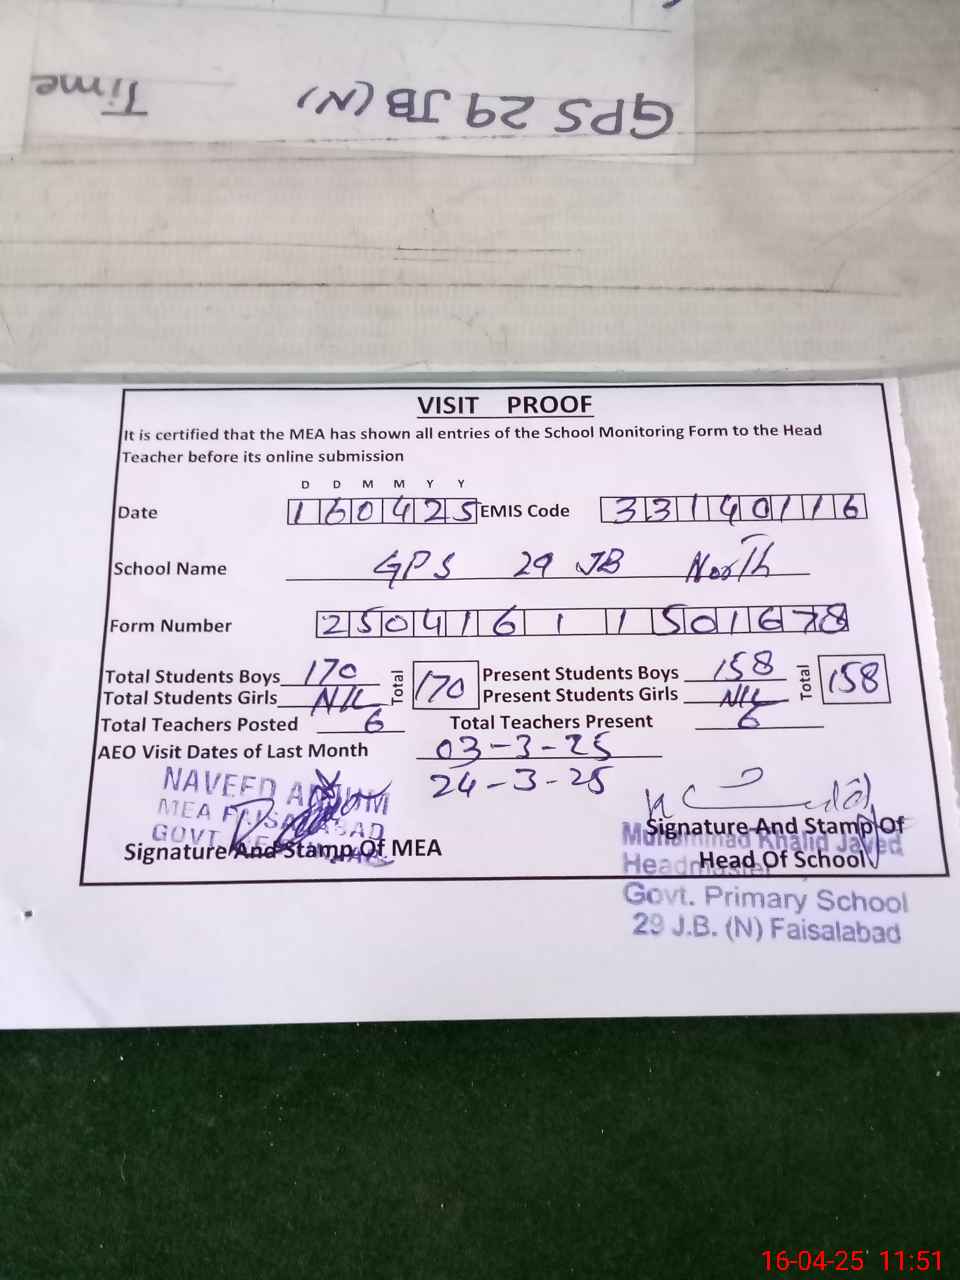 GPS 29 JB (N) Time
VISIT PROOF
It is certified that the MEA has shown all entries of the School Monitoring Form to the Head
Teacher before its online submission
D D M M Y Y
Date 160425 EMIS Code 33140116
School Name GPS 29 JB North
Form Number 25041611501678
Total Students Boys 170 Total 170 Present Students Boys 158 Total 158
Total Students Girls NIL Present Students Girls NIL
Total Teachers Posted 6 Total Teachers Present 6
AEO Visit Dates of Last Month 03-3-25
24-3-25
NAVEED ANJUM
MEA FAISALABAD
GOVT
Signature And Stamp Of MEA
Signature And Stamp Of
Head Of School
Muhammad Khalid Javed
Headmaster
Govt. Primary School
29 J.B. (N) Faisalabad
16-04-25 11:51